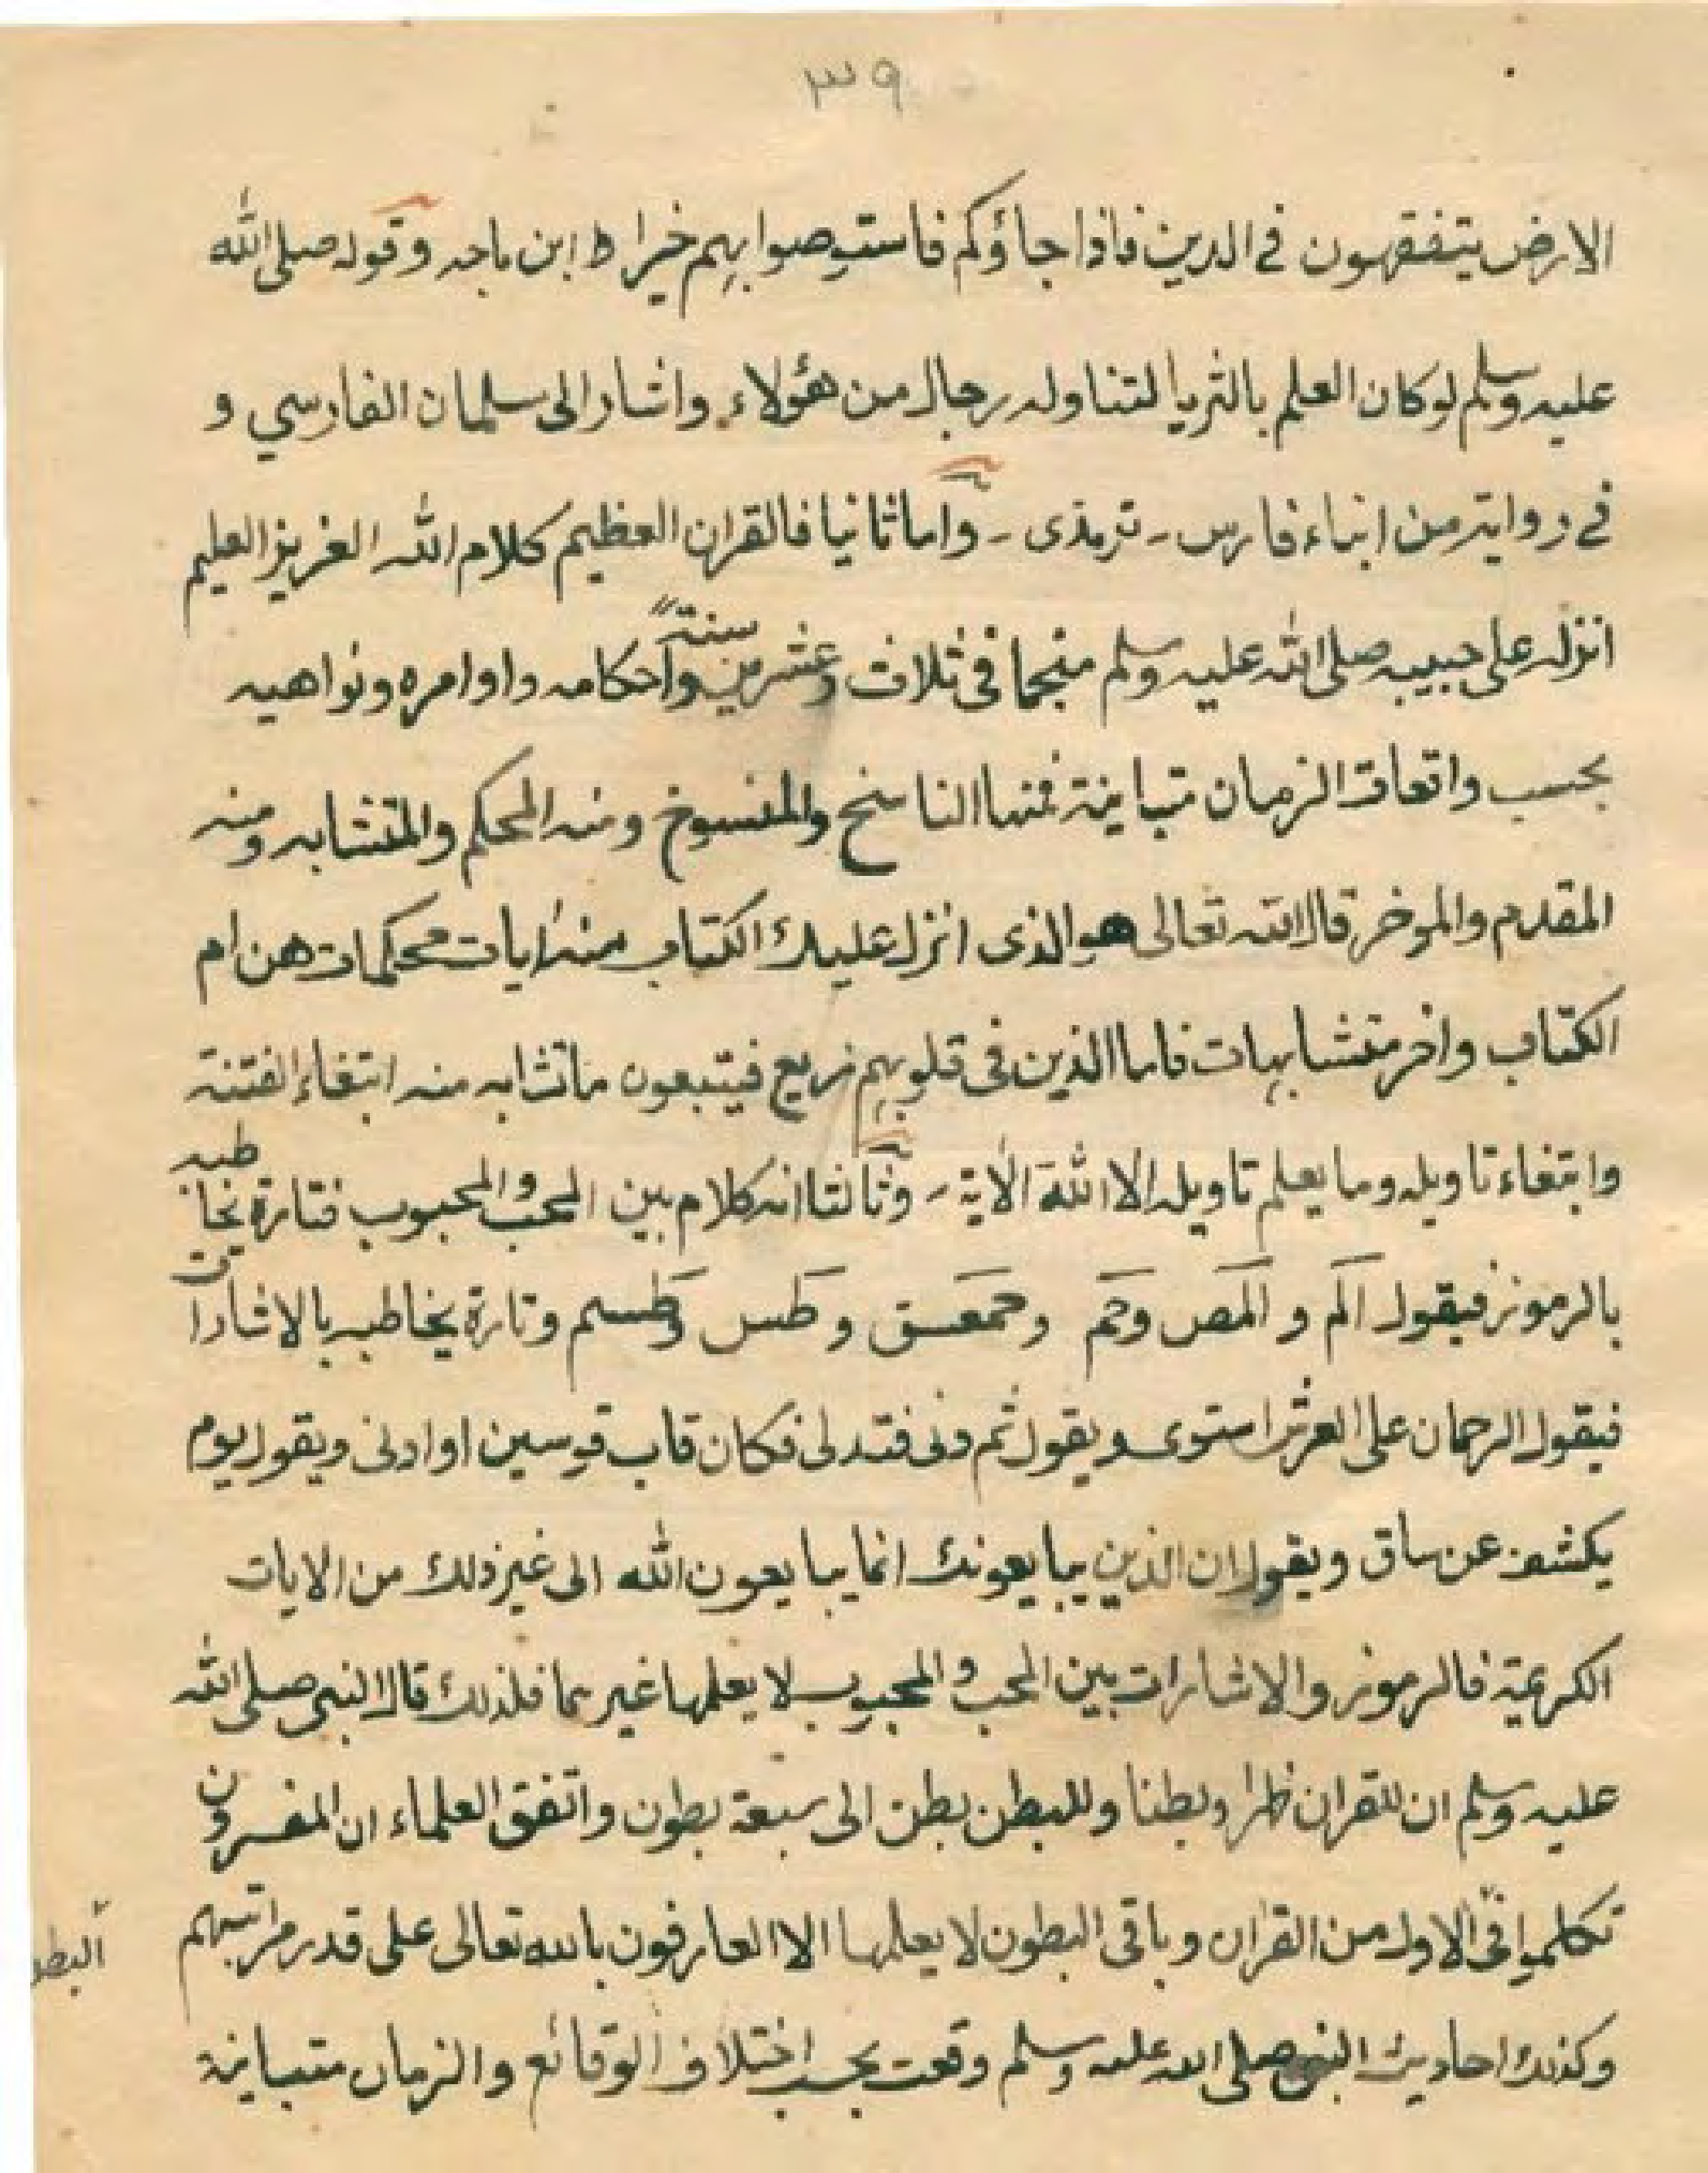 ٣٩
الارض يتفقهون في الدين فاذا جاؤكم فاستوصوا بهم خيرا ط ابن ماجه وقوله صلى الله
عليه وسلم لو كان العلم بالثريا لتناوله رجال من هؤلاء واشار الى سلمان الفارسي و
في رواية من ابناء فارس - ترمذى - واما ثانيا فالقران العظيم كلام الله العزيز العليم
انزله على حبيبه صلى الله عليه وسلم منجما فى ثلاث وعشرين سنة واحكامه واوامره ونواهيه
بحسب واقعات الزمان متباينة فمنها الناسخ والمنسوخ ومنه المحكم والمتشابه ومنه
المقدم والموخر قال الله تعالى هو الذى انزل عليك الكتاب منه ايات محكمات هن ام
الكتاب واخر متشابهات فاما الذين فى قلوبهم زيغ فيتبعون ما تشابه منه ابتغاء الفتنة
وابتغاء تاويله وما يعلم تاويله الا الله الاية - وثالثا انه كلام بين المحب والمحبوب فتارة يخاطبه
بالرموز فيقول الم و المص وحم وحمعسق و طس وطسم وتارة يخاطبه بالاشارات
فيقول الرحمان على العرش استوى ويقول ثم دنى فتدلى فكان قاب قوسين او ادنى ويقول يوم
يكشف عن ساق ويقول ان الذين يبايعونك انما يبايعون الله الى غير ذلك من الايات
الكريمة فالرموز والاشارات بين المحب والمحبوب لا يعلمها غيرهما فلذلك قال النبى صلى الله
عليه وسلم ان للقران ظهرا وبطنا وللبطن بطن الى سبعة بطون واتفق العلماء ان المفسرون
تكلموا فى الاول من القران وباقى البطون لا يعلمها الا العارفون بالله تعالى على قدر مراتبهم
وكذلك احاديث النبى صلى الله عليه وسلم وقعت بحسب اختلاف الوقائع والزمان متباينة